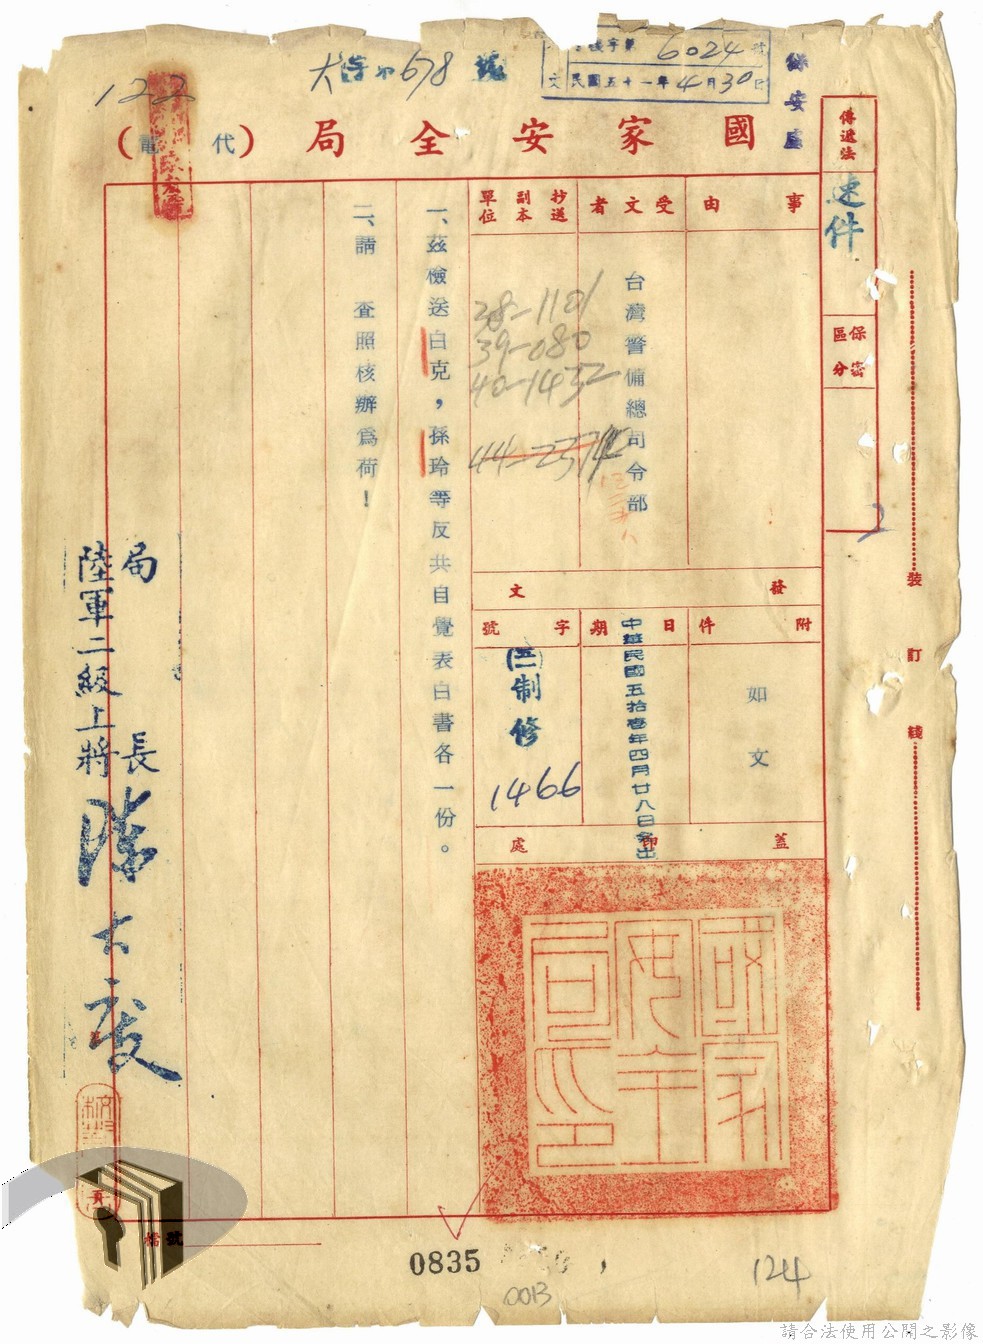 122
大 678 號
6024
民國五十一年4月30日
保安處
國家安全局(代電)
傳遞法
速件
保密區分
事由
受文者
台灣警備總司令部
抄送副本單位
38-1101
39-080
40-1432
發文
附件
如文
日期
中華民國五拾壹年四月廿八日發出
字號
(五一)制修
1466
蓋印處
國家安全局印
一、茲檢送白克,孫玲等反共自覺表白書各一份。
二、請 查照核辦為荷!
局長
陸軍二級上將
裝訂綫
檔號
0835
0013
124
請合法使用公開之影像